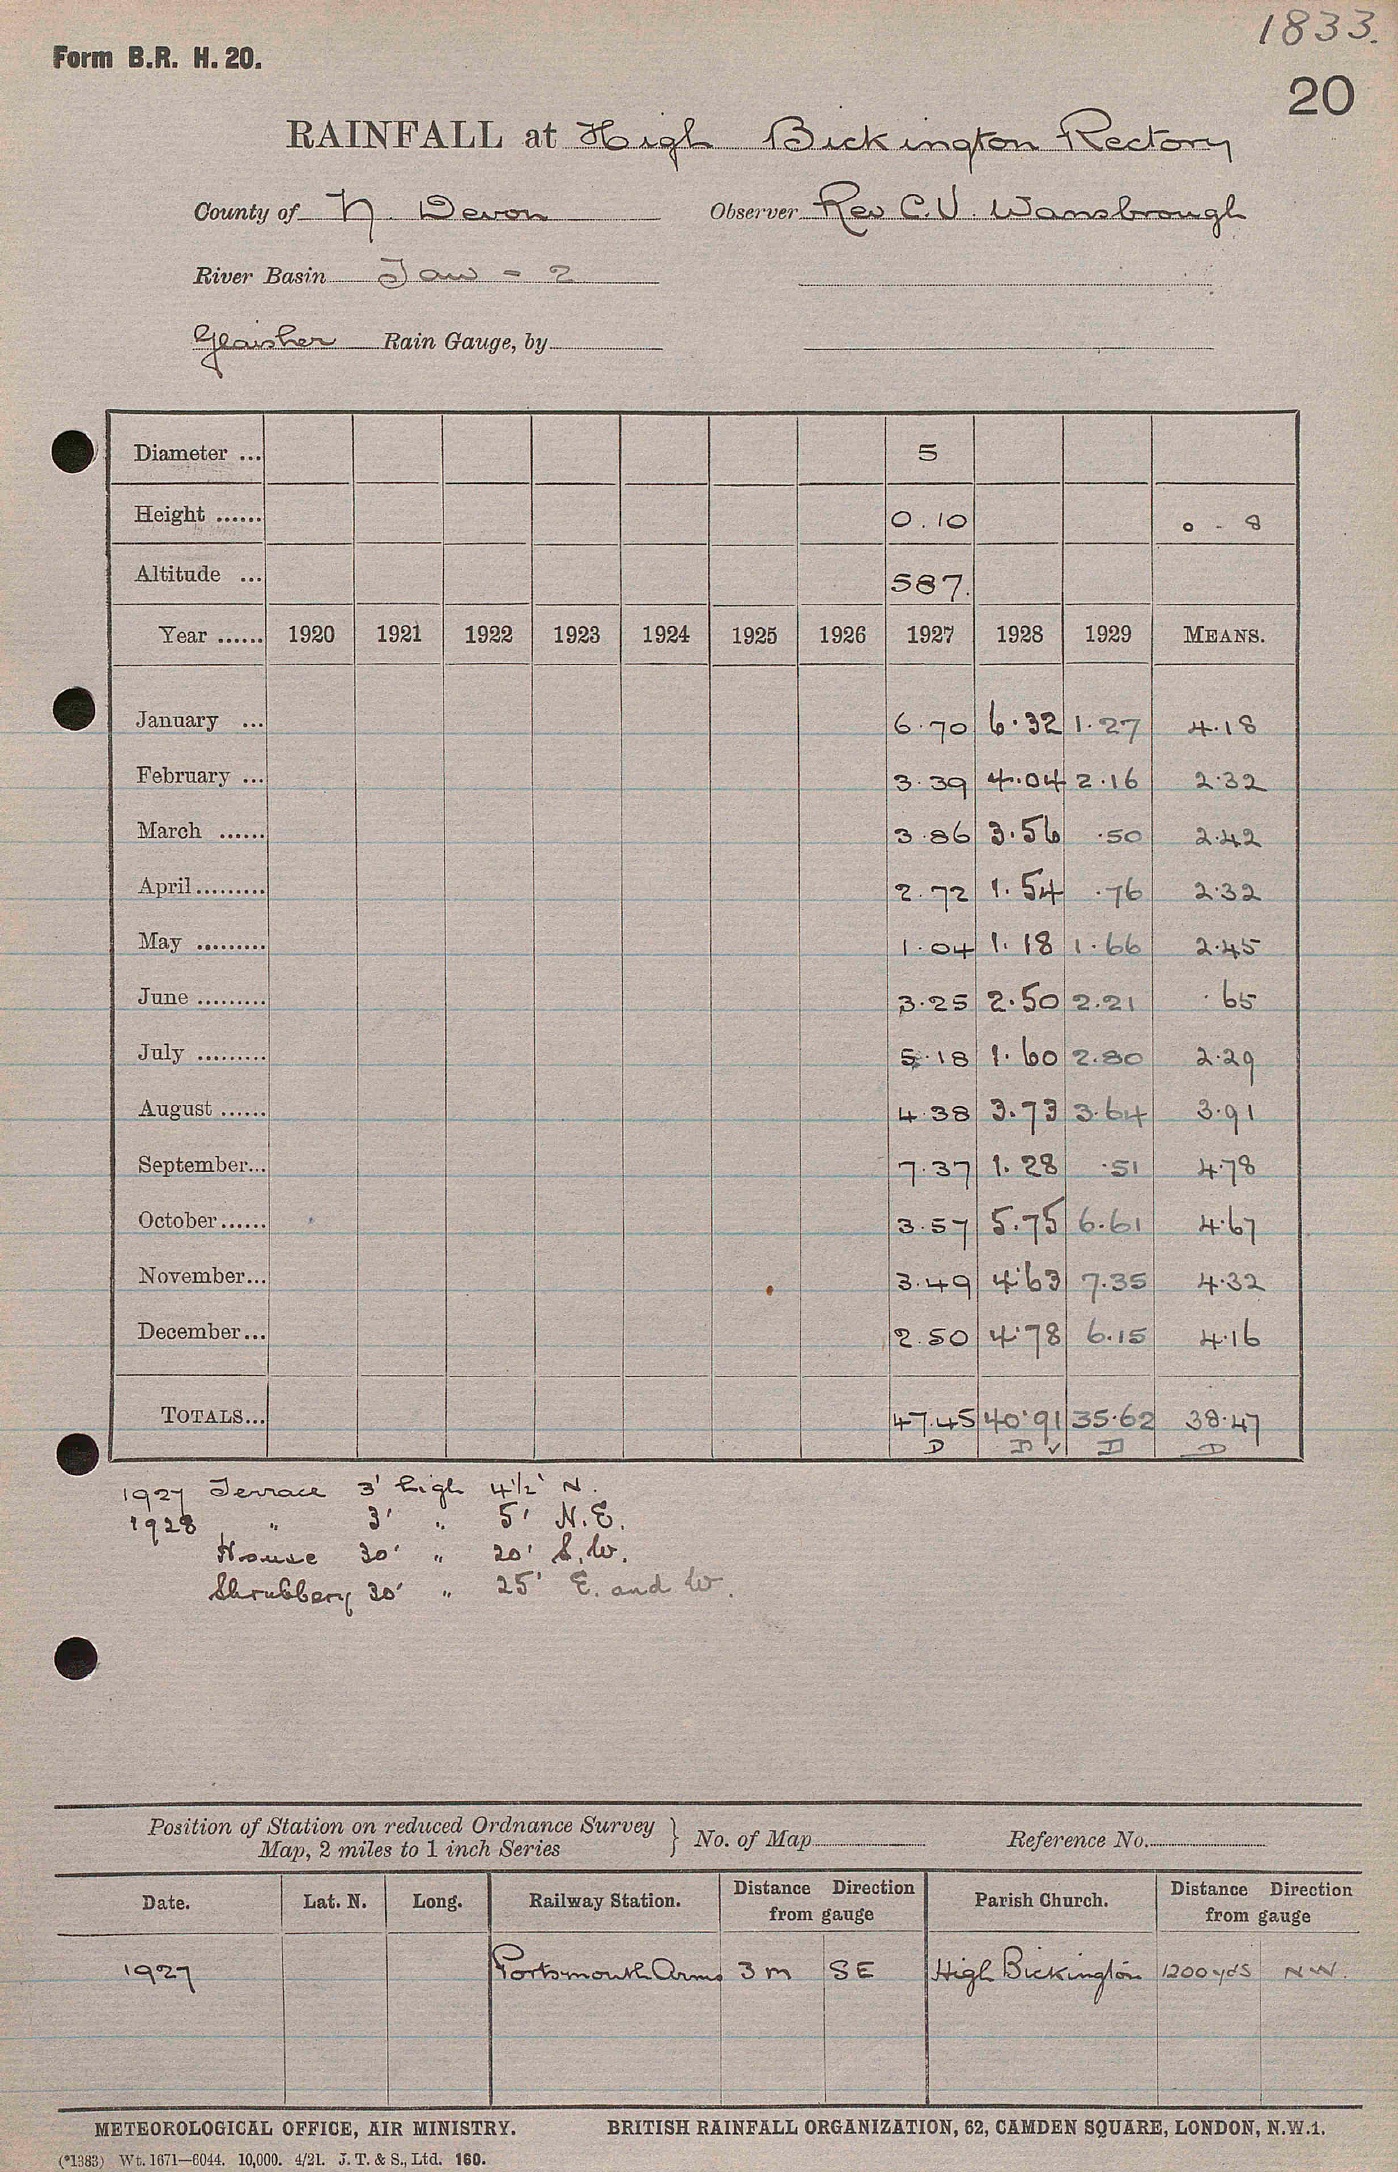 1833.
Form B.R. H. 20.
20
RAINFALL at High Bickington Rectory
County of N. Devon Observer Rev C.V. Wansbrough
River Basin Taw - 2
Glaisher Rain Gauge, by
Diameter ... 5
Height ...... 0.10 0 - 8
Altitude ... 587.
Year ...... 1920 1921 1922 1923 1924 1925 1926 1927 1928 1929 MEANS.
January ... 6.70 6.32 1.27 4.18
February ... 3.39 4.04 2.16 2.32
March ...... 3.86 3.56 .50 2.42
April......... 2.72 1.54 .76 2.32
May ......... 1.04 1.18 1.66 2.45
June ......... 3.25 2.50 2.21 .65
July ......... 5.18 1.60 2.80 2.29
August ...... 4.38 3.73 3.64 3.91
September... 7.37 1.28 .51 4.78
October...... 3.57 5.75 6.61 4.67
November... 3.49 4.63 7.35 4.32
December... 2.50 4.78 6.15 4.16
TOTALS... 47.45 40.91 35.62 38.47
D D ✓ D D
1927 Terrace 3' high 4½' N.
1928 " 3' " 5' N.E.
House 30' " 20' S.W.
Shrubbery 30' " 25' E. and W.
Position of Station on reduced Ordnance Survey
Map, 2 miles to 1 inch Series } No. of Map Reference No.
Date. Lat. N. Long. Railway Station. Distance Direction from gauge Parish Church. Distance Direction from gauge
1927 Portsmouth Arms 3 m SE High Bickington 1200 yds NW.
METEOROLOGICAL OFFICE, AIR MINISTRY. BRITISH RAINFALL ORGANIZATION, 62, CAMDEN SQUARE, LONDON, N.W.1.
(*1383) Wt. 1671—6044. 10,000. 4/21. J. T. & S., Ltd. 160.